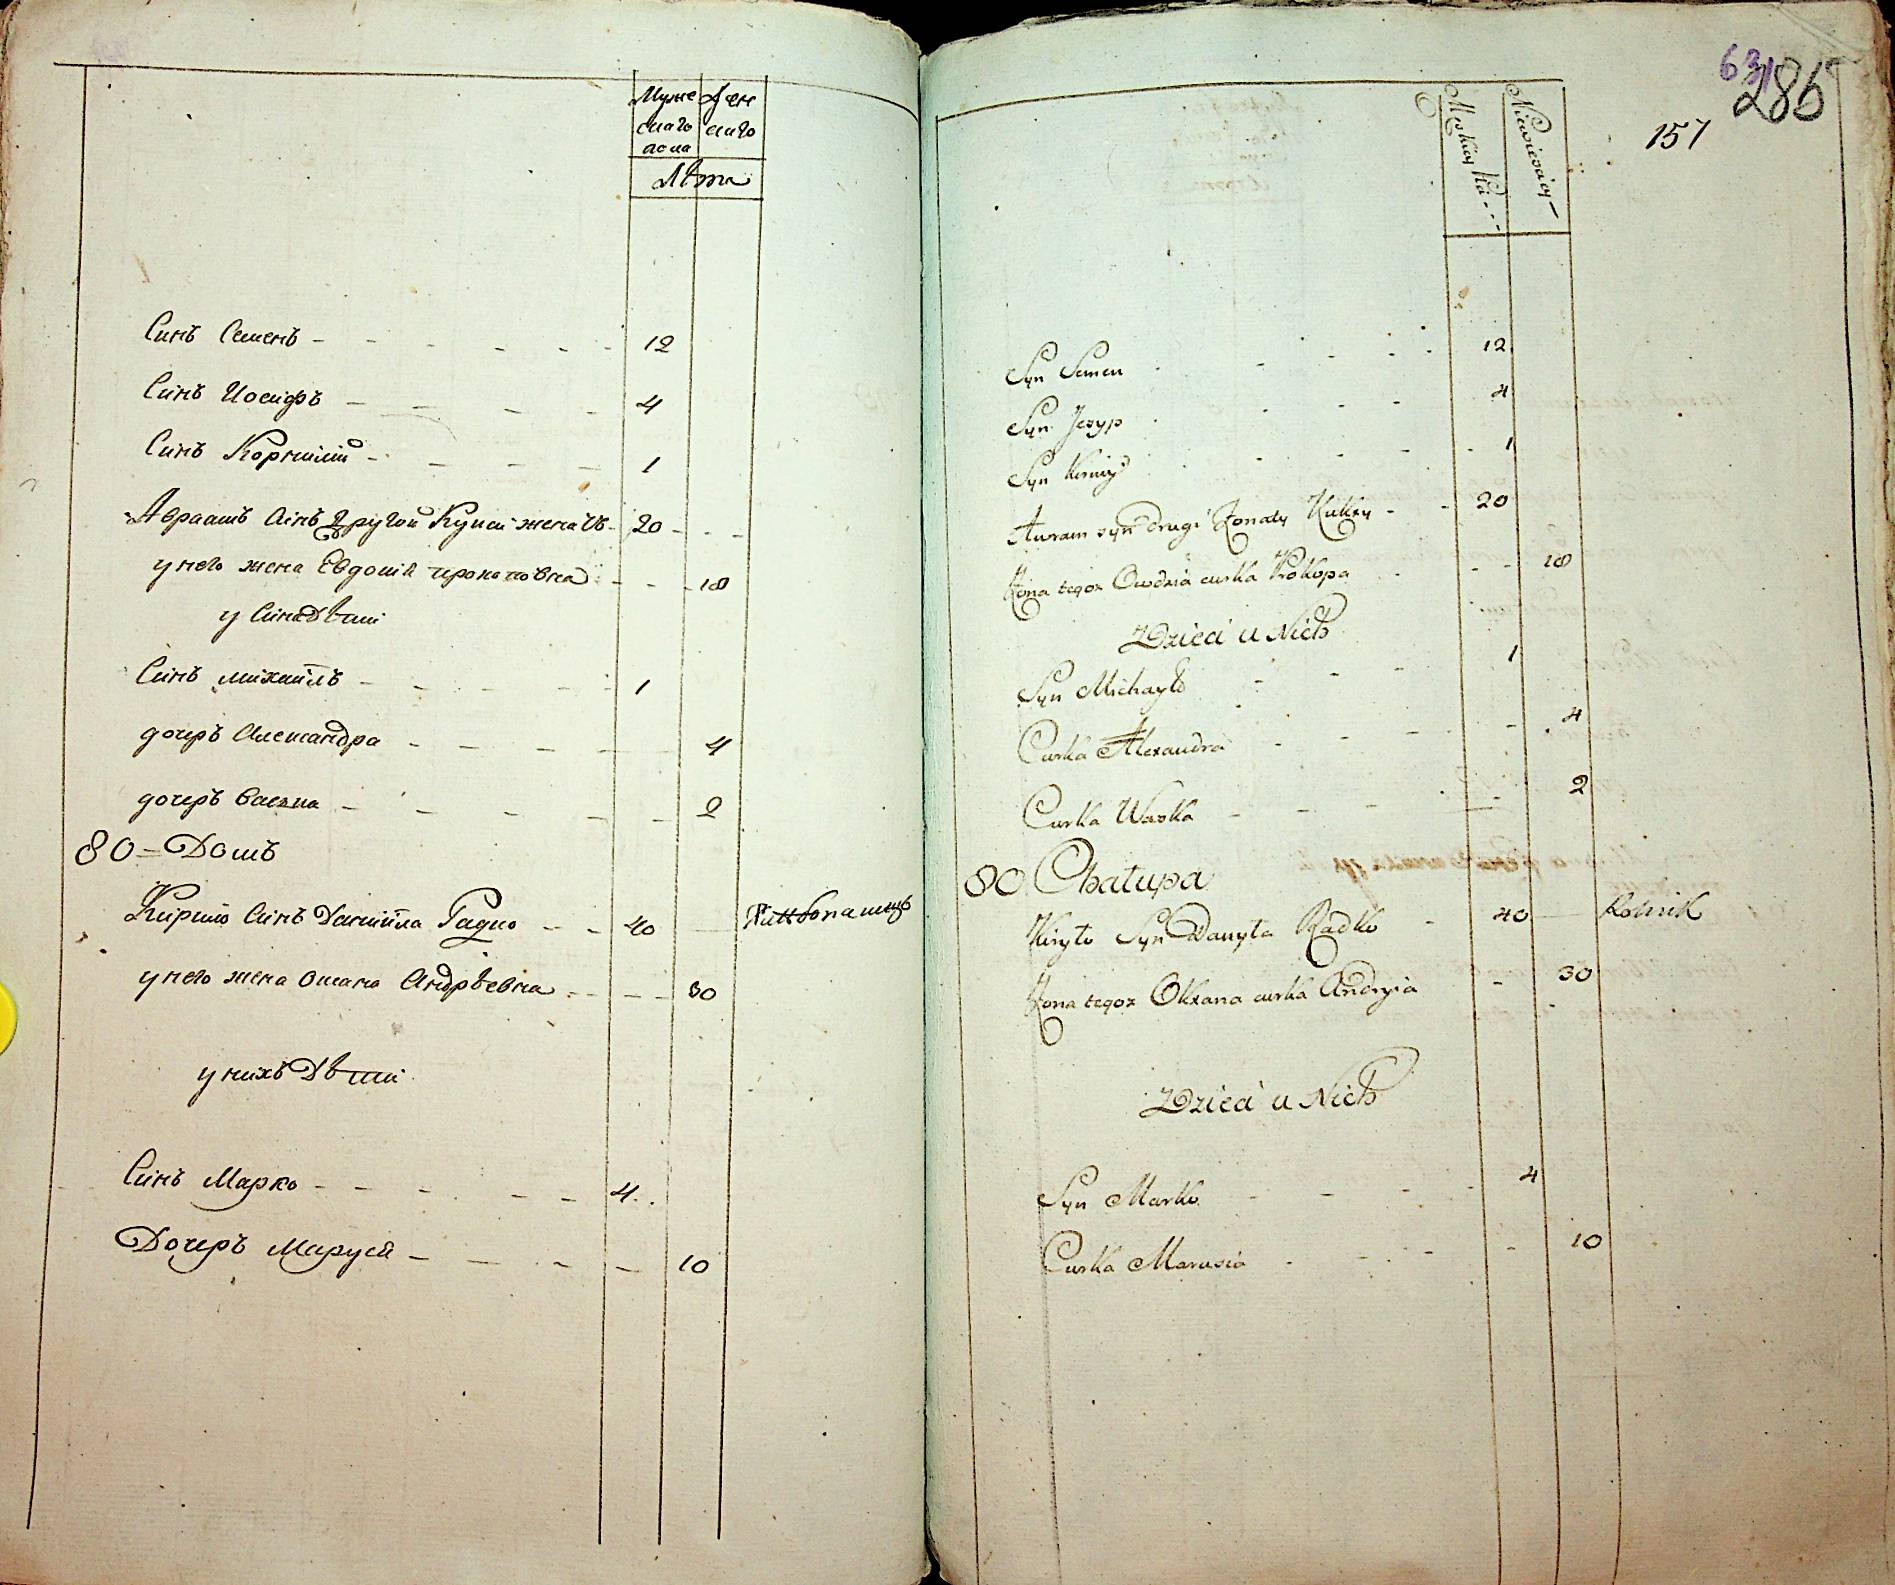 Муже Жен
скаго скаго
пола
Лѣта
Синъ Семенъ - - - - - - 12
Синъ Иосифъ - - - - 4
Синъ Корнилий - - - - 1
Авраамъ синъ другой Кукси женатъ - 20 - - -
у него жена Евдокия Прокоповна - - - 18
у сина Дѣти
Синъ Михайлъ - - - - - 1
дочеръ Александра - - - - 4
дочеръ Васка - - - - - 2
80 = Домъ
Кирило Синъ Данийла Радко - - 40 Хлѣбопашецъ
у него жена Оксана Андрѣевна - - - 30
у нихъ Дѣти
Синъ Марко - - - - - 4
Дочеръ Маруся - - - - 10
63 286
157
Męskiey
Niewiesciey
Syn Semen - - - - 12
Syn Jozyp - - - 4
Syn Korniy - - - - 1
Auram syn drugi Żonaty Kuksy - - 20
Żona tegoz Owdzia curka Prokopa - - - 18
Dzieci u Nich
Syn Michayło - - - 1
Curka Alexandra - - - - 4
Curka Waska - - - - 2
80 Chałupa
Kiryło Syn Danyła Radko - 40 Rolnik
Żona tegoz Oksana curka Andryia - 30
Dzieci u Nich
Syn Marko - - - - 4
Curka Marusia - - - - 10